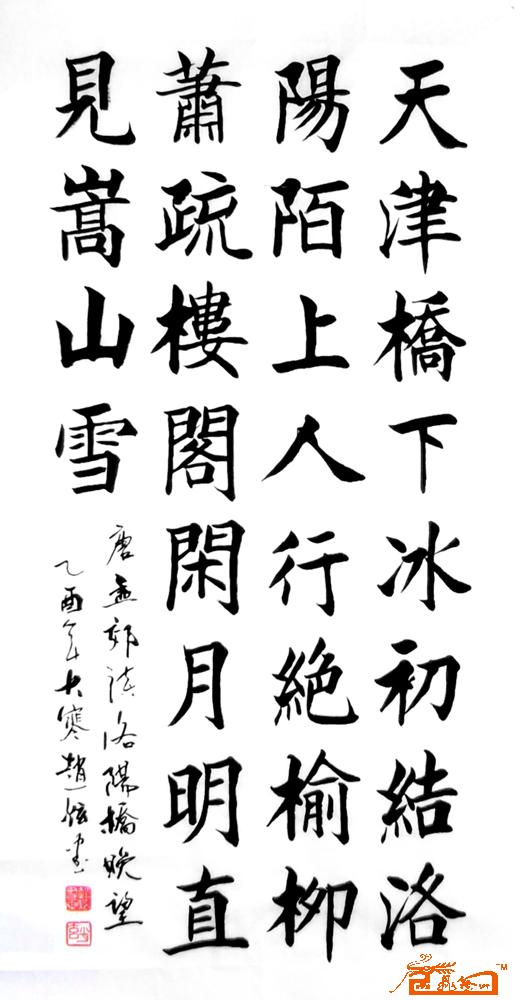 天津橋下冰初結洛
陽陌上人行絶榆柳
蕭疏樓閣閑月明直
見嵩山雪
唐孟郊詩洛陽橋晚望
乙酉年大寒趙